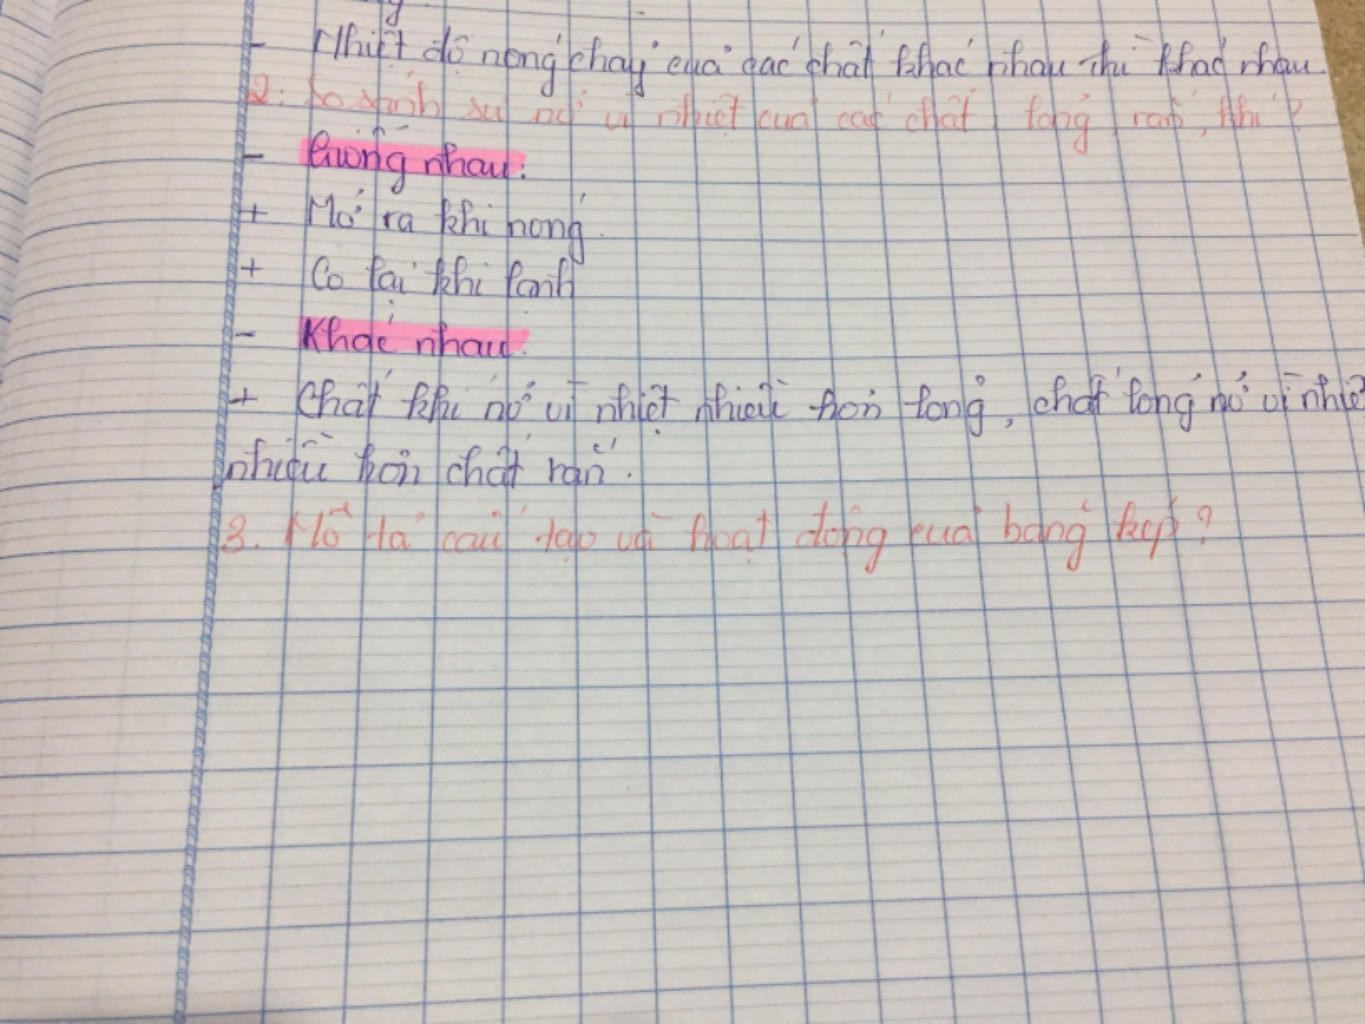 - Nhiệt độ nóng chảy của các chất khác nhau thì khác nhau.
2. So sánh sự nở vì nhiệt của các chất lỏng, rắn, khí?
- Giống nhau:
+ Nở ra khi nóng.
+ Co lại khi lạnh
- Khác nhau:
+ Chất khí nở vì nhiệt nhiều hơn lỏng, chất lỏng nở vì nhiệt
nhiều hơn chất rắn.
3. Mô tả cấu tạo và hoạt động của băng kép?